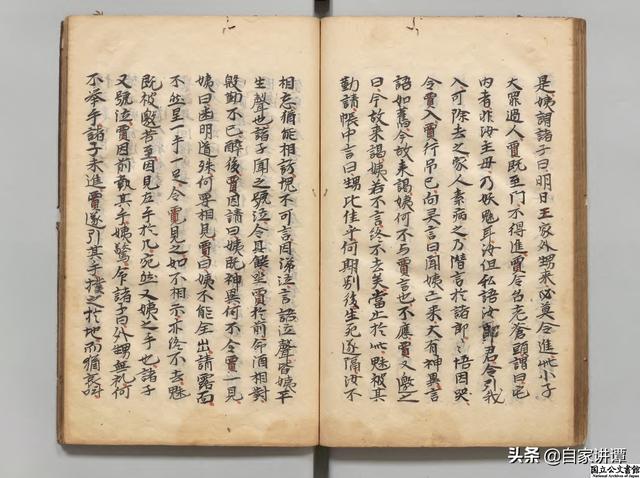 是姨謂諸子曰明日王家外甥來必莫令進此小子
大罪過人賈既至門不得進賈令召老蒼頭謂曰宅
內者非汝主母乃妖鬼耳汝但私語汝郎君令引我
入可除去之家人素病之乃潛言於諸郎諸郎悟因哭
令賈入賈行吊已向靈言曰聞姨亡來大有神異言
語如舊今故來謁姨何不与賈言也不應賈又邀之
曰今故來謁姨若不言終不去矣當止於此魅被其
勤請帳中言曰甥比佳乎何期别後生死遂隔汝不
相忘猶能相訪愧不可言因涕泣言語泣聲皆姨平
生聲也諸子聞之號泣令具饌坐賈於前命酒相對
殷勤不已醉後賈因請曰姨既神異何不令賈一見
姨曰幽明道殊何要相見賈曰姨不能全出請露面
不然呈一手一足令賈見之如不相示亦終不去魅
既被邀苦至因見左手於几宛然又姨之手也諸子
又號泣賈因前執其手姨驚命諸子曰外甥無礼何
不举手諸子未進賈遂引其手撲之於地而猶哀叫
头条 @自家讲谭
国立公文書館
National Archives of Japan